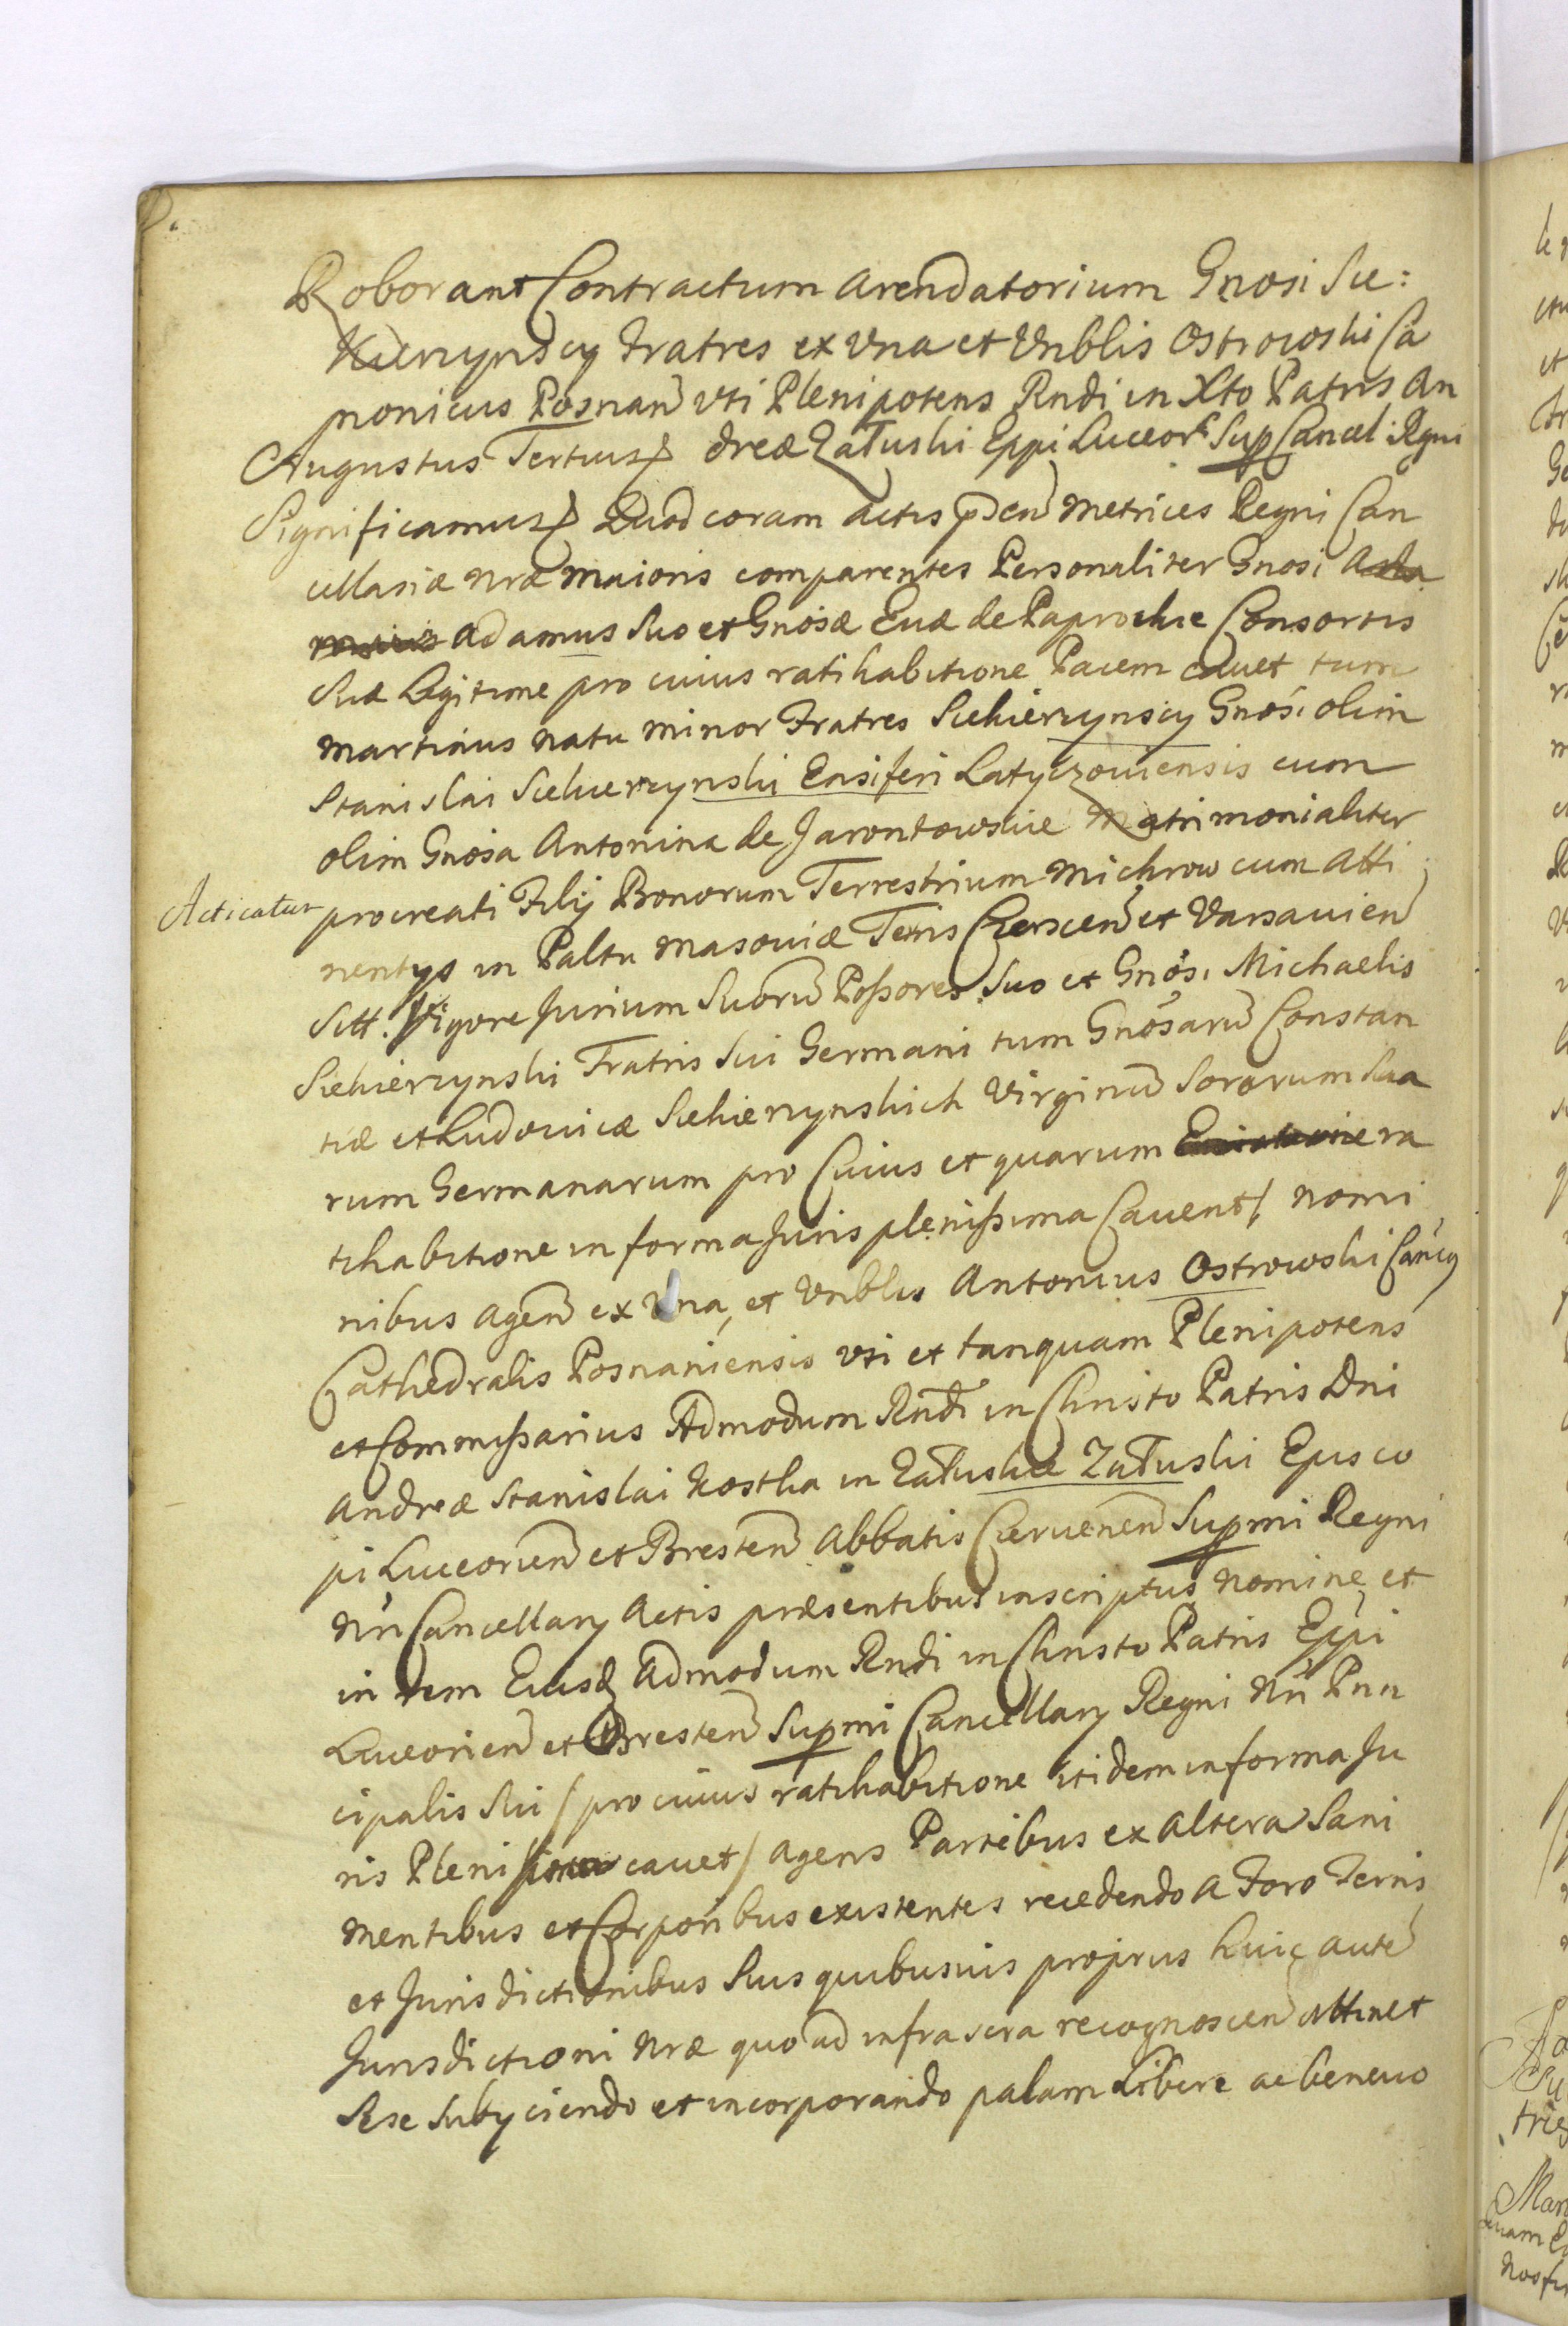 Roborant Contractum Arendatorium Gnosi Sie:
kierzynscy Fratres ex Vna et Vnblis Ostrowski Ca
nonicus Posnan vti Plenipotens Rndi in Xto Patris An
Augustus Tertius dreæ Załuski Eppi Luceor Sup Cancel: Rgni
Significamus Quod coram actis pden metrices Regni Can
cellariæ nræ maioris comparentes Personaliter Gnosi
Adamus Suo et Gnosæ Euæ de Paprockie Consortis
Suæ Legitimæ pro cuius ratihabitione Pacem cauet tum
Martinus natu minor Fratres Siekierzynscy Gnosi olim
Stanislai Siekierzynski Ensiferi Latyczouiensis cum
olim Gnosa Antonina de Jarontowskie Matrimonialiter
Acticatur procreati Filij Bonorum Terrestrium Michrow cum Atti
nentys in Paltu Masouiæ Terris Czerscen et Varsauien
Sitt. Vigore Jurium Suoru Possores Suo et Gnosi Michaelis
Siekierzynski Fratris Sui Germani tum Gnosaru Constan
tiæ et Ludouicæ Siekierzynskich Virginu Sororum Sua
rum Germanarum pro Cuius et quarum ra
tihabitione in forma Juris plenissima Cauent / nomi
nibus agen ex Vna, et Vnblis Antonius Ostrowski Canicus
Cathedralis Posnaniensis vti et tanquam Plenipotens
et Commissarius Admodum Rndi in Christo Patris Dni
Andreæ Stanislai Kostka in Załuskie Załuski Episco
pi Luceorien et Bresten Abbatis Czeruenen Supmi Regni
Nri Cancellary Actis præsentibus inscriptus nomine et
in rem Eiusd Admodum Rndi in Christo Patris Eppi
Luceorien et Bresten Supmi Cancellary Regni Nri Prin
cipalis Sui / pro cuius ratihabitione itidem in forma Ju
ris Plenissima cauet / agens Partibus ex altera Sani
mentibus et Corporibus existentes recedendo a Foro Terris
et Jurisdictionibus Suis quibusuis proprus huic aute
Jurisdictioni Nræ quo ad infra scra recognoscen attinet
Sese Subyciendo et incorporando palam Libere ac beneuo